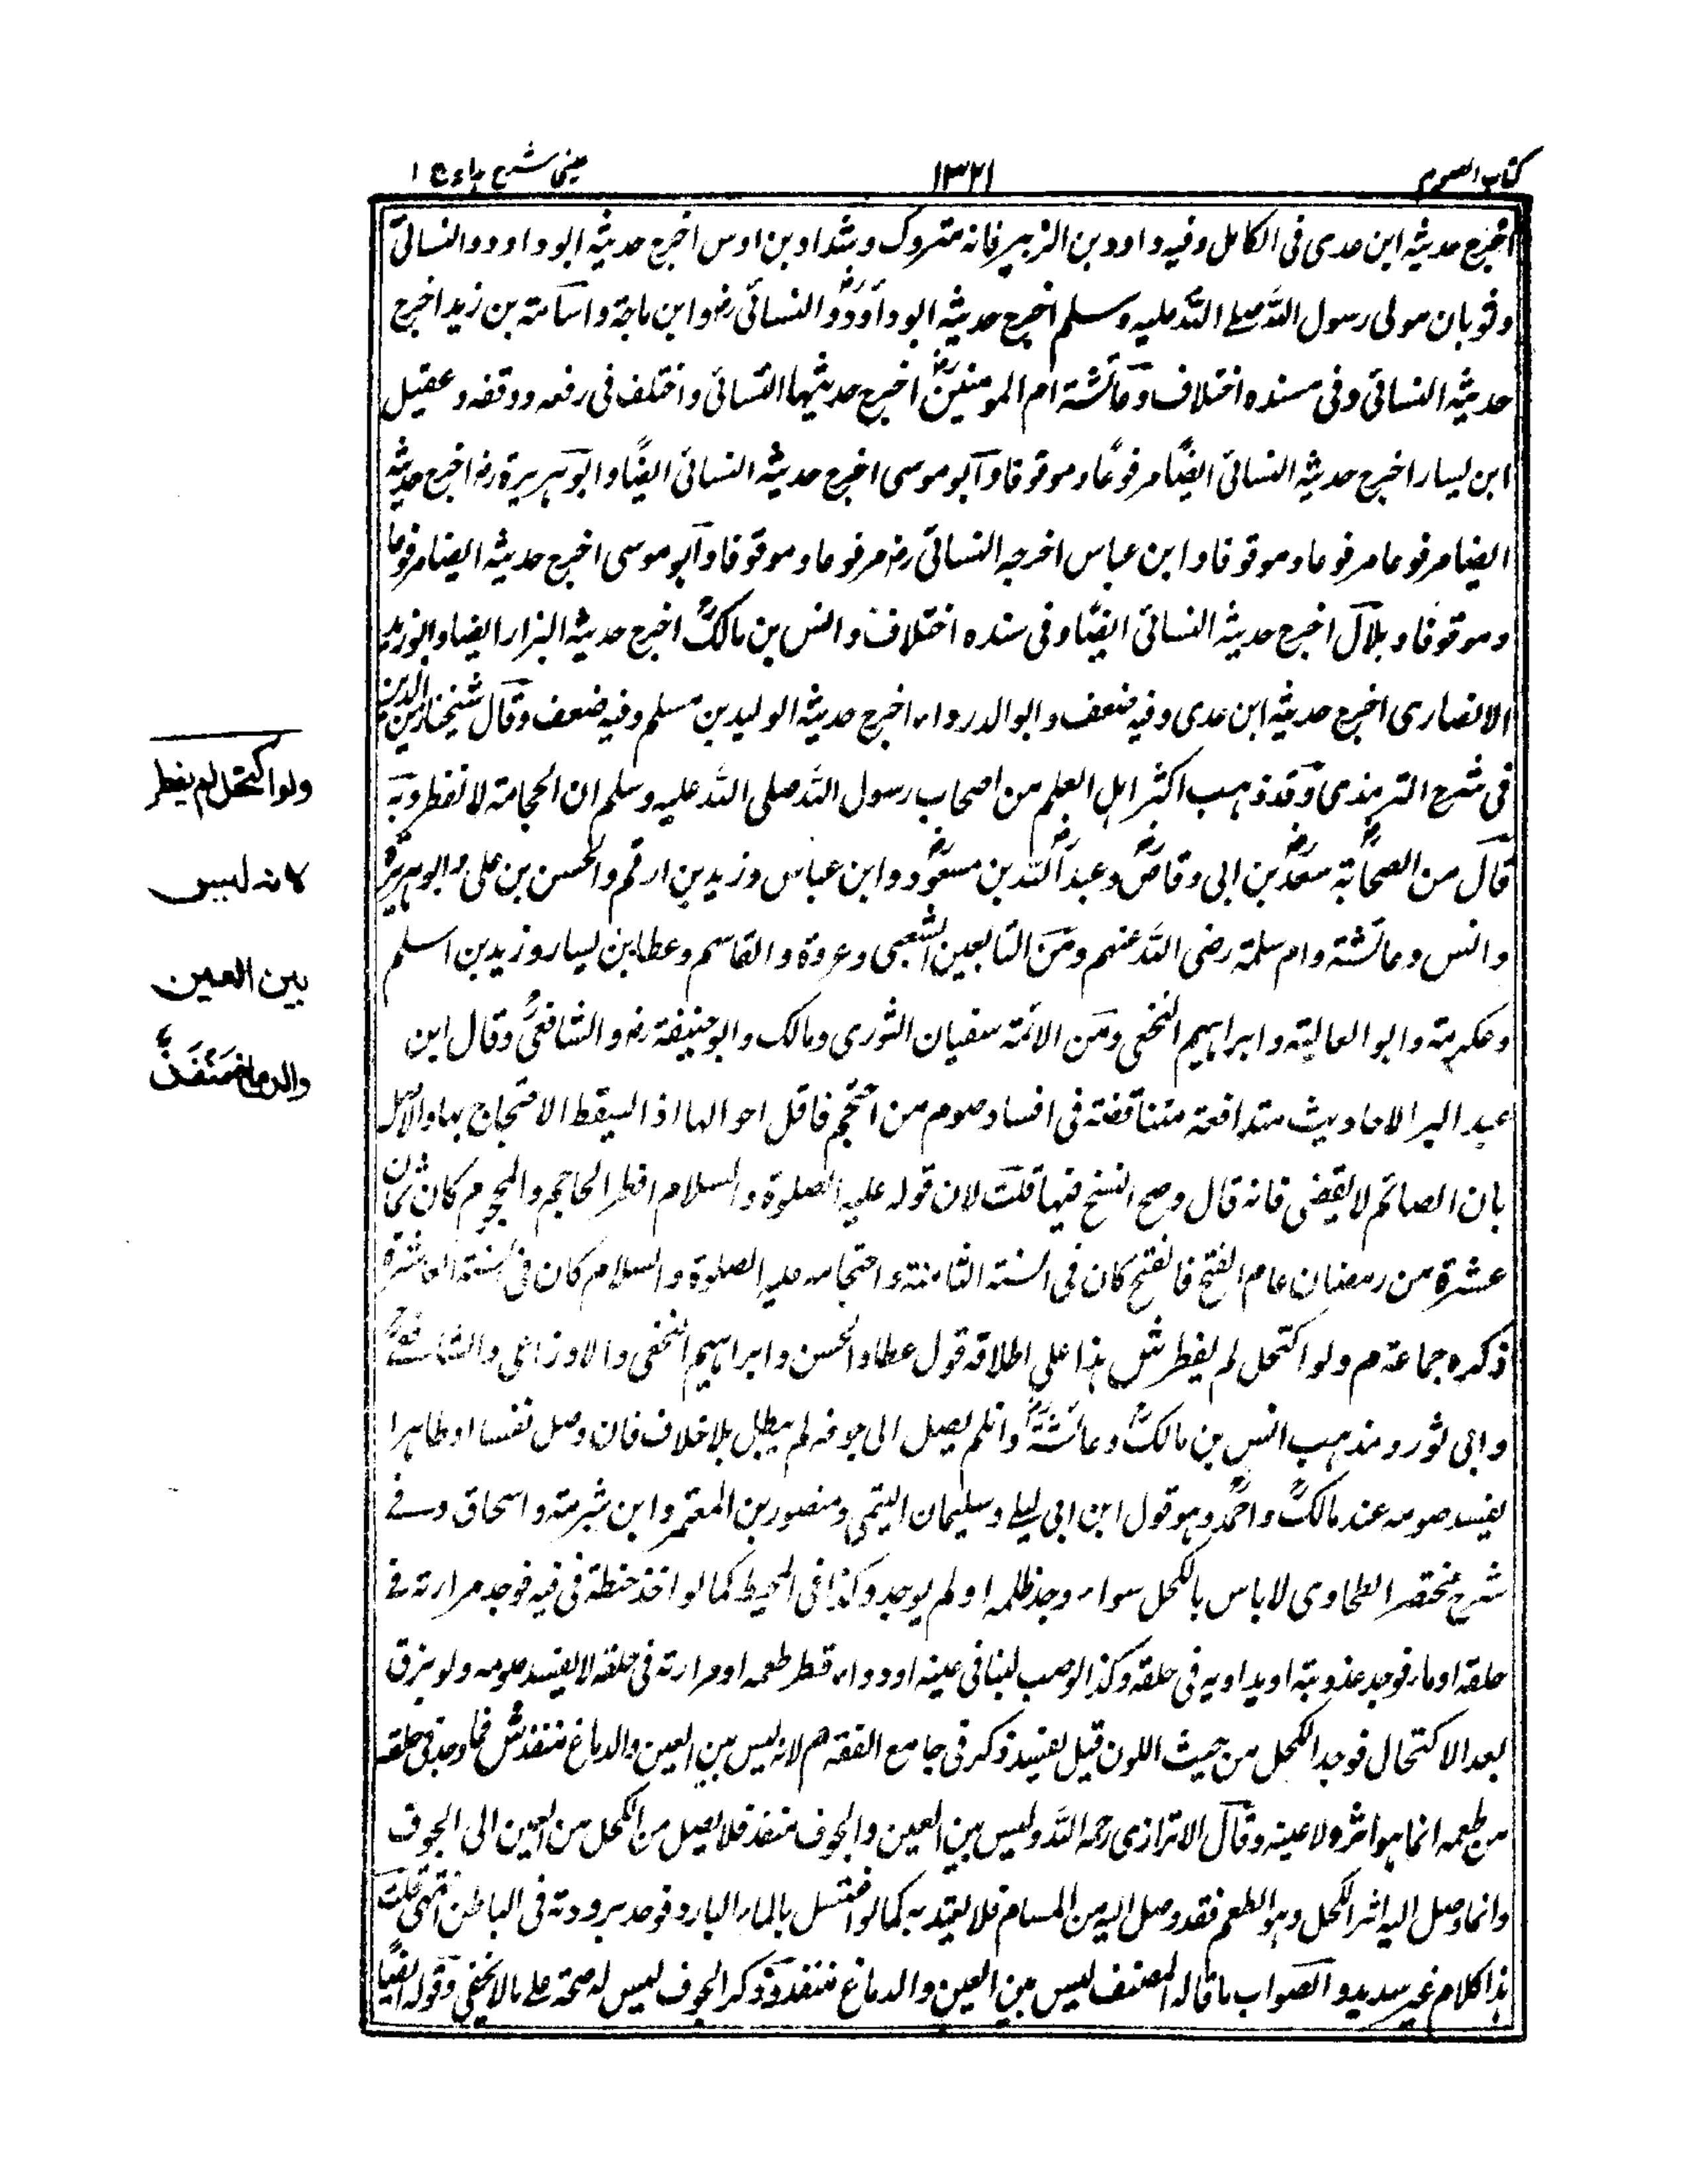 كتاب الصوم
١٣٢١
عينى شرح هداية ج ١
اخرج حديثه ابن عدى فى الكامل وفيه داود بن الزبير فانه متروك وشداد بن اوس اخرج حديثه ابو داود والنسائى
وثوبان مولى رسول الله صلى الله عليه وسلم اخرج حديثه ابو داود والنسائى رض وابن ماجة واسامة بن زيد اخرج
حديثه النسائى وفى مسنده اختلاف وعائشة ام المومنين رض اخرج حديثها النسائى واختلف فى رفعه ووقفه وعقيل
ابن يسار اخرج حديثه النسائى ايضًا مرفوعًا وموقوفا وابو موسى اخرج حديثه النسائى ايضًا وابو هريرة رض اخرج حديثه
ايضا مرفوعا مرفوعا وموقوفا وابن عباس اخرجه النسائى رض مرفوعا وموقوفا وابو موسى اخرج حديثه ايضا مرفوعا
وموقوفا وبلال اخرج حديثه النسائى ايضًا وفى سنده اختلاف وانس بن مالك رض اخرج حديثه البزار ايضا وابو زيد
الانصارى اخرج حديثه ابن عدى وفيه ضعف وابو الدرداء اخرج حديثه الوليد بن مسلم وفيه ضعف وقال شيخنا زين الدين
فى شرح الترمذى وقد ذهب اكثر اهل العلم من اصحاب رسول الله صلى الله عليه وسلم ان الحجامة لا تفطر وبه
قال من الصحابة سعد بن ابى وقاص رض وعبد الله بن مسعود رض وابن عباس وزيد بن ارقم والحسن بن على وابو هريرة
وانس وعائشة وام سلمة رضى الله عنهم ومن التابعين الشعبى وعروة والقاسم وعطا بن يسار وزيد بن اسلم
وعكرمة وابو العالية وابراهيم النخعى ومن الائمة سفيان الثورى ومالك وابو حنيفة رض والشافعى وقال ابن
عبد البر الاحاديث متدافعة متناقضة فى افساد صوم من احتجم فاقل احوالها اذ السيقط الاحتجاج بها والاصل
بان الصائم لا يقضى فانه قال وصح النسخ فيها قلت لان قوله عليه الصلوة والسلام افطر الحاجم والمحجوم كان ثمان
عشرة من رمضان عام الفتح فالفتح كان فى السنة الثامنة واحتجامه عليه الصلوة والسلام كان فى السنة العاشرة
ذكره جماعة م ولو اكتحل لم يفطر ش هذا على اطلاقه قول عطا والحسن وابراهيم النخعى والاوزاعى والشافعى
وابى ثور ومذهب انس بن مالك رض وعائشة رض وان لم يصل الى جوفه لم يبطل بلا خلاف فان وصل نفسا او ظاهرا
يفسد صومه عند مالك واحمد وهو قول ابن ابى ليلى وسليمان التيمى ومنصور بن المعتمر وابن شبرمة واسحاق وفى
شرح مختصر الطحاوى لا باس بالكحل سواء وجد طعمه او لم يوجد وكذا فى المحيط كما لو اخذ حنطة فى فيه فوجد مرارته فى
حلقه او ماء فوجد عذوبته او يداويه فى حلقه وكذا لو صب لبنا فى عينه او دواء قطر طعمه او مرارته فى حلقه لا يفسد صومه ولو بزق
بعد الاكتحال فوجد الكحل من حيث اللون قيل يفسد ذكر فى جامع الفقه م لانه ليس بين العين والدماغ منفذ ش فما وجد فى حلقه
من طعمه انما هو اثره لا عينه وقال الاترازى رحمه الله وليس بين العين والجوف منفذ فلا يصل من الكحل من العين الى الجوف
وانما وصل اليه اثر الكحل وهو الطعم فقد وصل اليه من المسام فلا يعتد به كما لو اغتسل بالماء البارد فوجد برودته فى الباطن انتهى قلت
هذا كلام غير سديد والصواب ما قاله المصنف ليس بين العين والدماغ منفذ وذكر الجوف ليس له صحة على ما لا يخفى وقوله ايضًا
ولو اكتحل لم يفطر
لانه ليس
بين العين
والدماغ منفذ